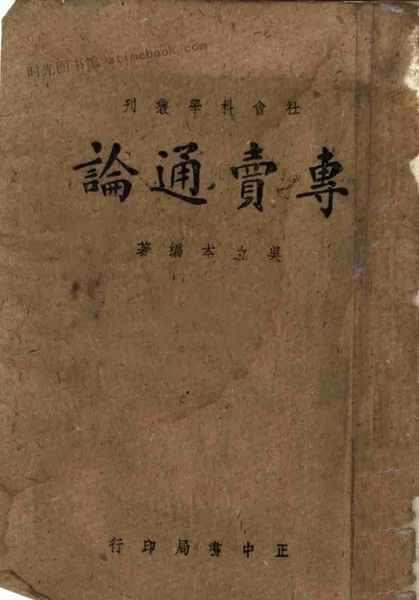 时光图书馆 atimebook.com
社會科學叢刊
專賣通論
吳立本編著
正中書局印行